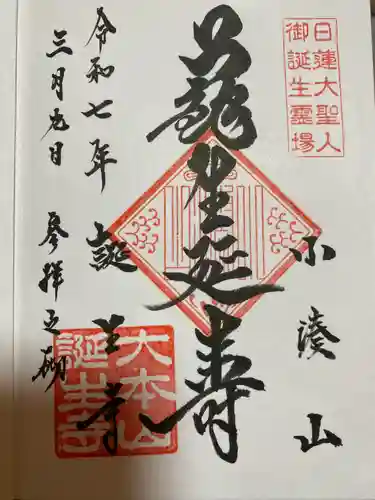 日蓮大聖人
御誕生霊場
小湊山
生延寿
大本山
誕生寺
誕生寺
令和七年
三月九日 参拝之砌